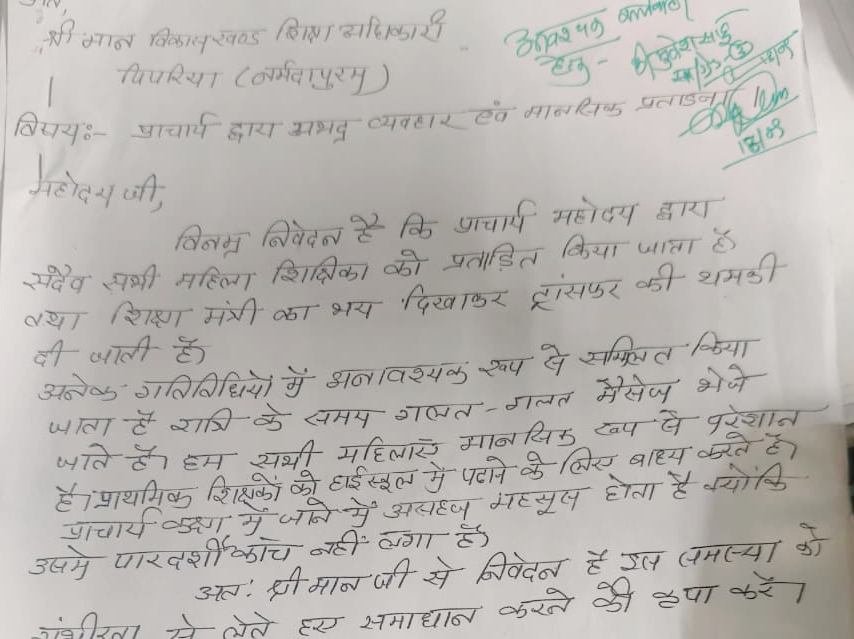 श्री मान विकासखण्ड शिक्षा अधिकारी
पिपरिया (नर्मदापुरम)
आवश्यक कार्यवाही
हेतु -
विषयः- प्राचार्य द्वारा अभद्र व्यवहार एवं मानसिक प्रताडना
महोदय जी,
विनम्र निवेदन है कि प्राचार्य महोदय द्वारा
सदैव सभी महिला शिक्षिका को प्रताड़ित किया जाता है
तथा शिक्षा मंत्री का भय दिखाकर ट्रांसफर की धमकी
दी जाती है।
अनेक गतिविधियों में अनावश्यक रूप से सम्मिलित किया
जाता है रात्रि के समय गलत-गलत मैसेज भेजे
जाते है। हम सभी महिलाएं मानसिक रूप से परेशान
है। प्राथमिक शिक्षकों को हाईस्कूल में पढाने के लिए बाध्य करते है।
प्राचार्य कक्ष में जाने में असहज महसूस होता है क्योंकि
उसमे पारदर्शी काँच नहीं लगा है।
अतः श्री मान जी से निवेदन है इस समस्या को
गंभीरता से लेते हुए समाधान करने की कृपा करें।